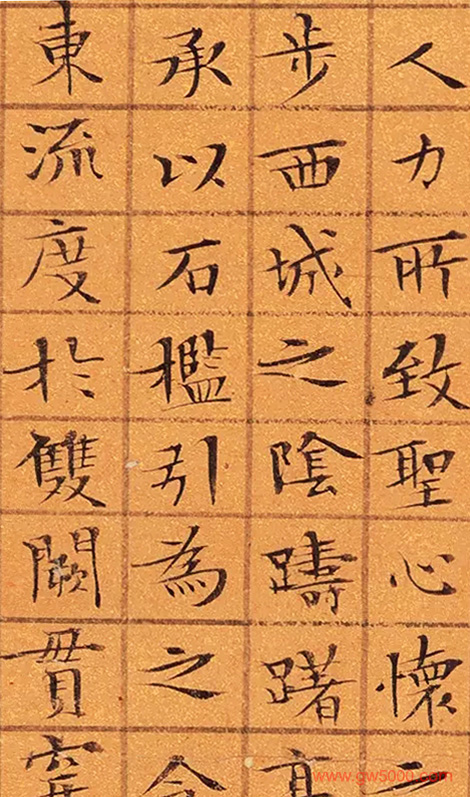 人力所致聖心懷
步西城之陰躊躇
承以石檻引為之
東流度於雙闕貫
www.gw5000.com